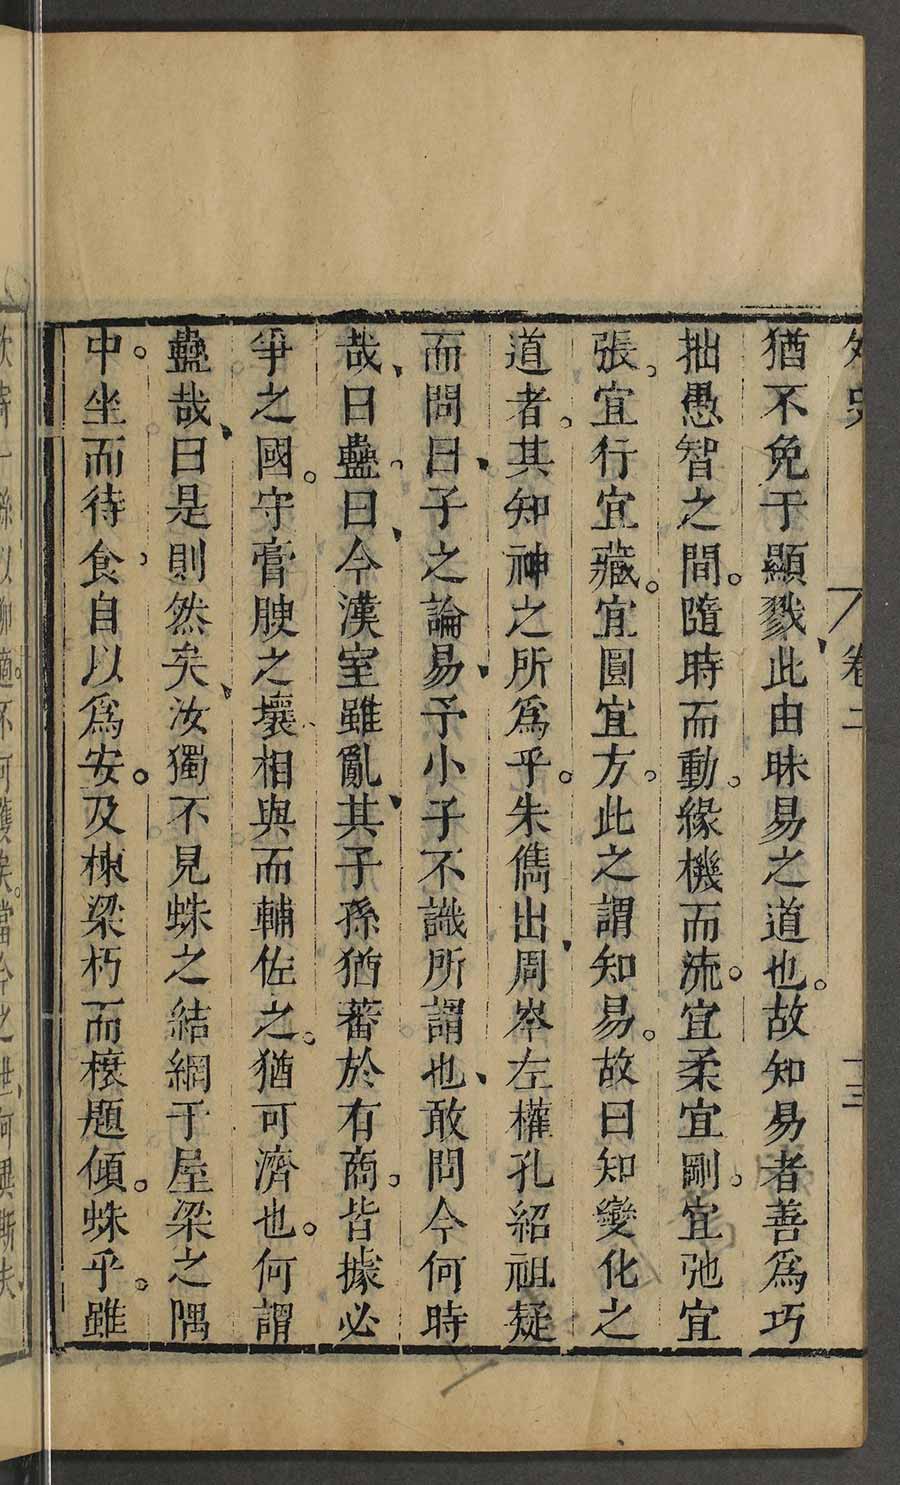 卷二
猶不免于顯戮此由昧易之道也。故知易者善爲巧
拙愚智之間。隨時而動。緣機而流。宜柔宜剛。宜弛宜
張。宜行宜藏。宜圓宜方。此之謂知易。故曰知變化之
道者。其知神之所爲乎。朱儁出周岑左權孔紹祖疑
而問曰、子之論易、予小子不識所謂也、敢問今何時
哉、曰蠱。曰、今漢室雖亂、其子孫猶蕃於有商。皆據必
爭之國。守膏腴之壤相與而輔佐之。猶可濟也。何謂
蠱哉、曰是則然矣、汝獨不見蛛之結網于屋梁之隅
中。坐而待食、自以爲安。及棟梁朽而榱題傾。蛛乎。雖